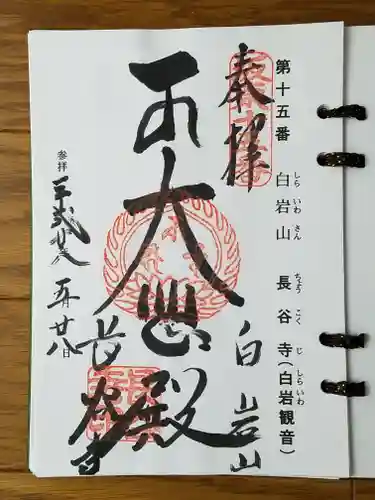 第十五番 白岩山 長谷寺(白岩観音)
しら いわ さん ちょう こく じ しらいわ
奉拝
大悲殿
白岩山
長谷寺
参拝
五月廿八日